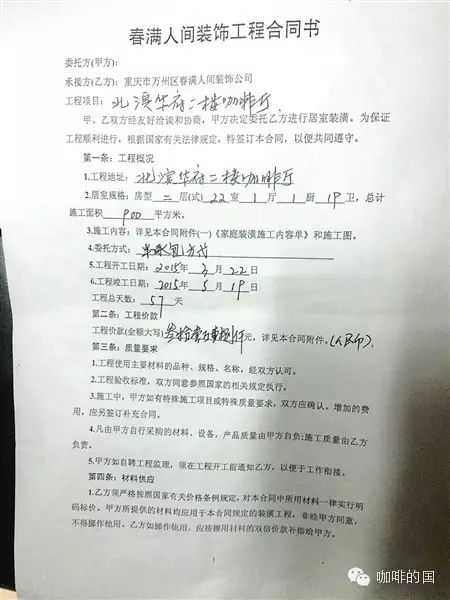 春满人间装饰工程合同书
委托方(甲方):
承接方(乙方): 重庆市万州区春满人间装饰公司
工程项目: 北滨华府二楼咖啡厅
甲、乙双方经友好洽谈和协商,甲方决定委托乙方进行居室装潢。为保证
工程顺利进行,根据国家有关法律规定,特签订本合同,以便共同遵守。
第一条: 工程概况
1.工程地址: 北滨华府二楼咖啡厅
2.居室规格: 房型 二 层(式) 22 室 1 厅 1 厨 19 卫, 总计
施工面积 900 平方米。
3.施工内容: 详见本合同附件(一)《家庭装潢施工内容单》和施工图。
4.委托方式:
5.工程开工日期: 2015年 3 月 22 日
6.工程竣工日期: 2015年 5 月 19 日
工程总天数: 57 天
第二条: 工程价款
工程价款(金额大写) 元, 详见本合同附件。(人民币)
第三条: 质量要求
1.工程使用主要材料的品种、规格、名称,经双方认可。
2.工程验收标准,双方同意参照国家的相关规定执行。
3.施工中,甲方如有特殊施工项目或特殊质量要求,双方应确认,增加的费
用,应另签订补充合同。
4.凡由甲方自行采购的材料、设备,产品质量由甲方自负;施工质量由乙方
负责。
5.甲方如自聘工程监理,须在工程开工前通知乙方,以便于工作衔接。
第四条: 材料供应
1.乙方须严格按照国家有关价格条例规定,对本合同中所用材料一律实行明
码标价。甲方所提供的材料均应用于本合同规定的装潢工程,非经甲方同意,
不得挪作他用。乙方如挪作他用,应按挪用材料的双倍价款补偿给甲方。
1
咖啡的国